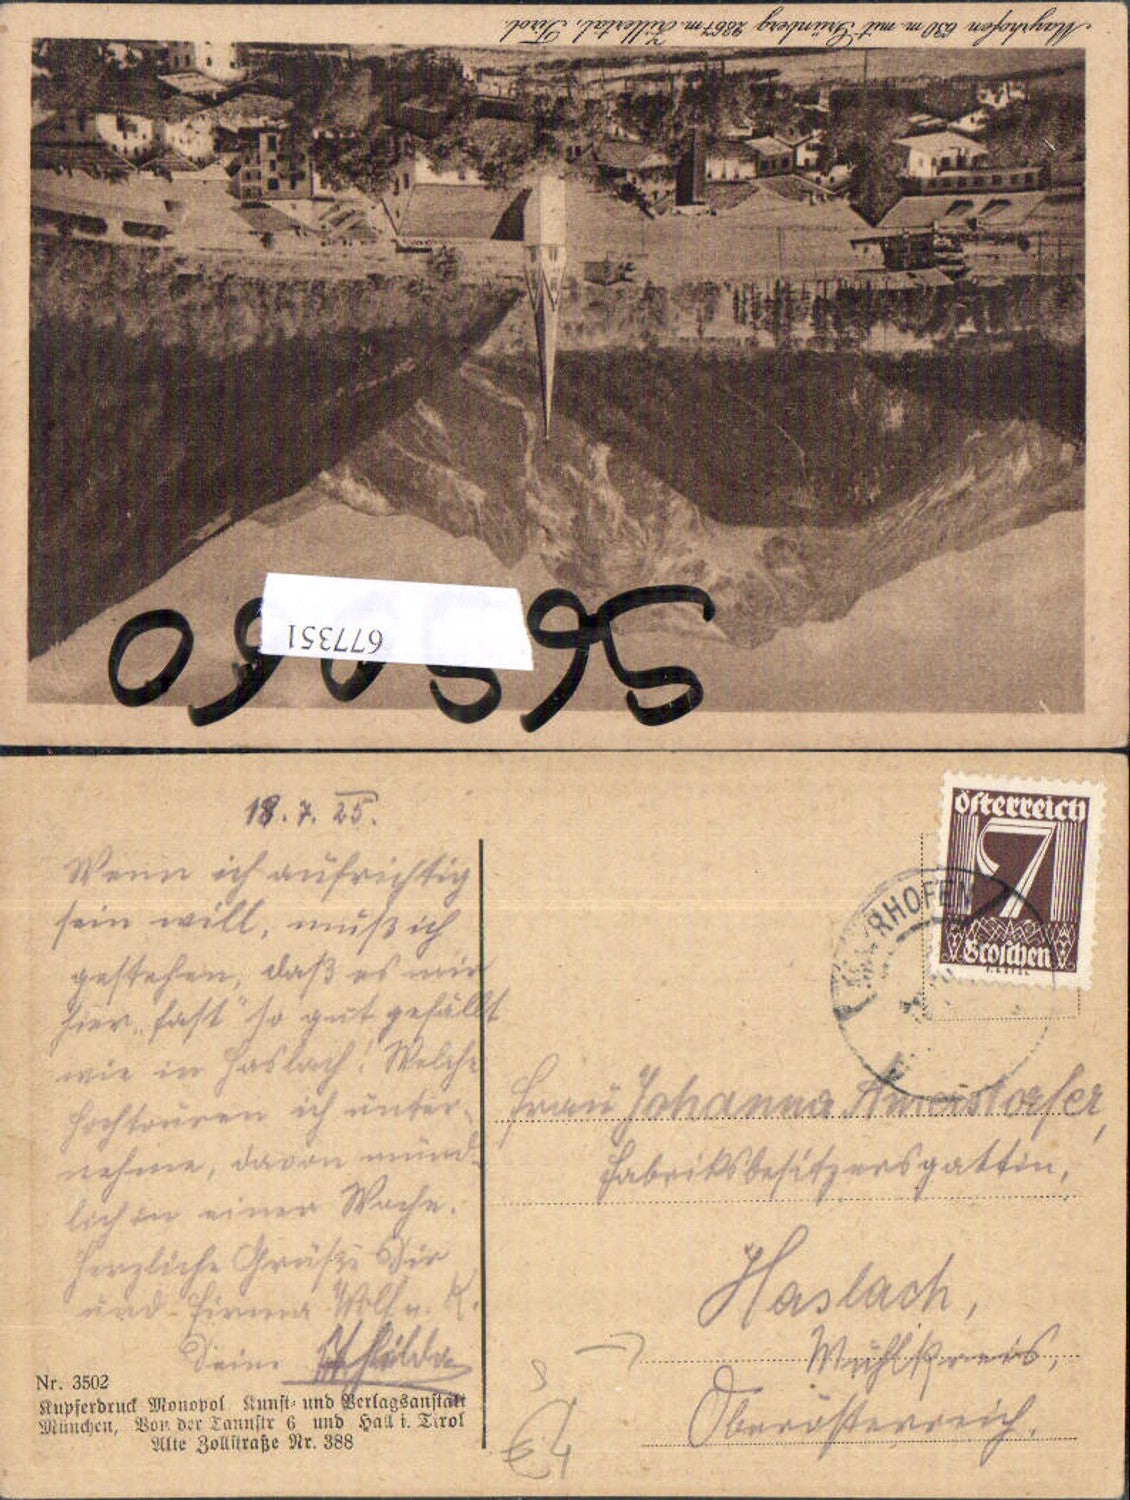 Mayrhofen 630 m. mit Grünberg 2867 m. Zillertal, Tirol.
677351
18. 7. 25.
Wenn ich aufrichtig
sein will, muß ich
gestehen, daß es mir
hier „fast" so gut gefällt
wie in Haslach! Welche
Hochtouren ich unter-
nehme, davon münd-
lich in einer Woche.
Herzliche Grüße Dir
und Firma Wolf u.
Deine Hilda
Österreich
7
Groschen
MAYRHOFEN
Frau Johanna
Fabriksbesitzersgattin,
Haslach,
Mühlkreis,
Oberösterreich.
Nr. 3502
Kupferdruck Monopol Kunst- und Verlagsanstalt
München, Von der Tannstr 6 und Hall i. Tirol
Alte Zollstraße Nr. 388